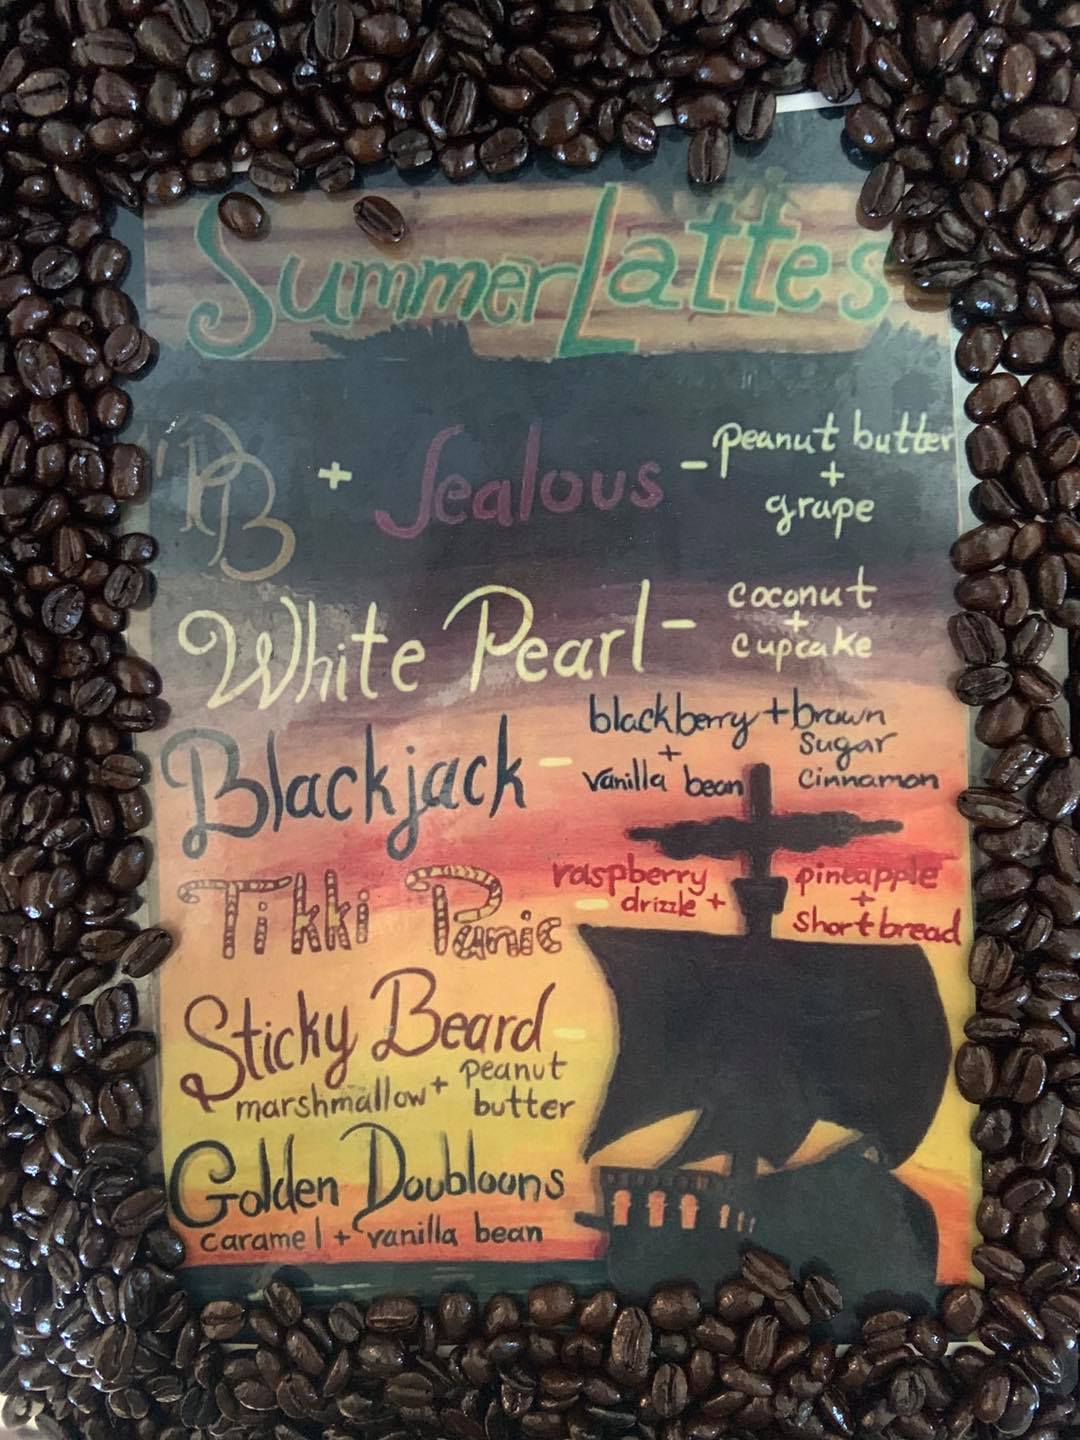 Summer Lattes
PB + Jealous - peanut butter
+
grape
White Pearl - coconut
+
cupcake
Blackjack - blackberry + brown
+ sugar
vanilla bean cinnamon
Tikki Panic - raspberry pineapple
drizzle + +
shortbread
Sticky Beard -
marshmallow + peanut
butter
Golden Doubloons -
caramel + vanilla bean